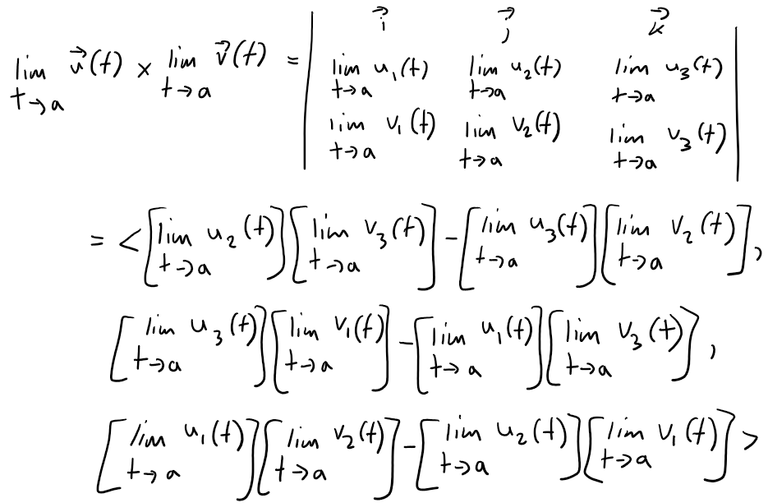 lim_{t→a} \vec{u}(t) × lim_{t→a} \vec{v}(t) = | \vec{i} \vec{j} \vec{k} |
| lim_{t→a} u₁(t) lim_{t→a} u₂(t) lim_{t→a} u₃(t) |
| lim_{t→a} v₁(t) lim_{t→a} v₂(t) lim_{t→a} v₃(t) |
= < [lim_{t→a} u₂(t)] [lim_{t→a} v₃(t)] - [lim_{t→a} u₃(t)] [lim_{t→a} v₂(t)],
[lim_{t→a} u₃(t)] [lim_{t→a} v₁(t)] - [lim_{t→a} u₁(t)] [lim_{t→a} v₃(t)],
[lim_{t→a} u₁(t)] [lim_{t→a} v₂(t)] - [lim_{t→a} u₂(t)] [lim_{t→a} v₁(t)] >